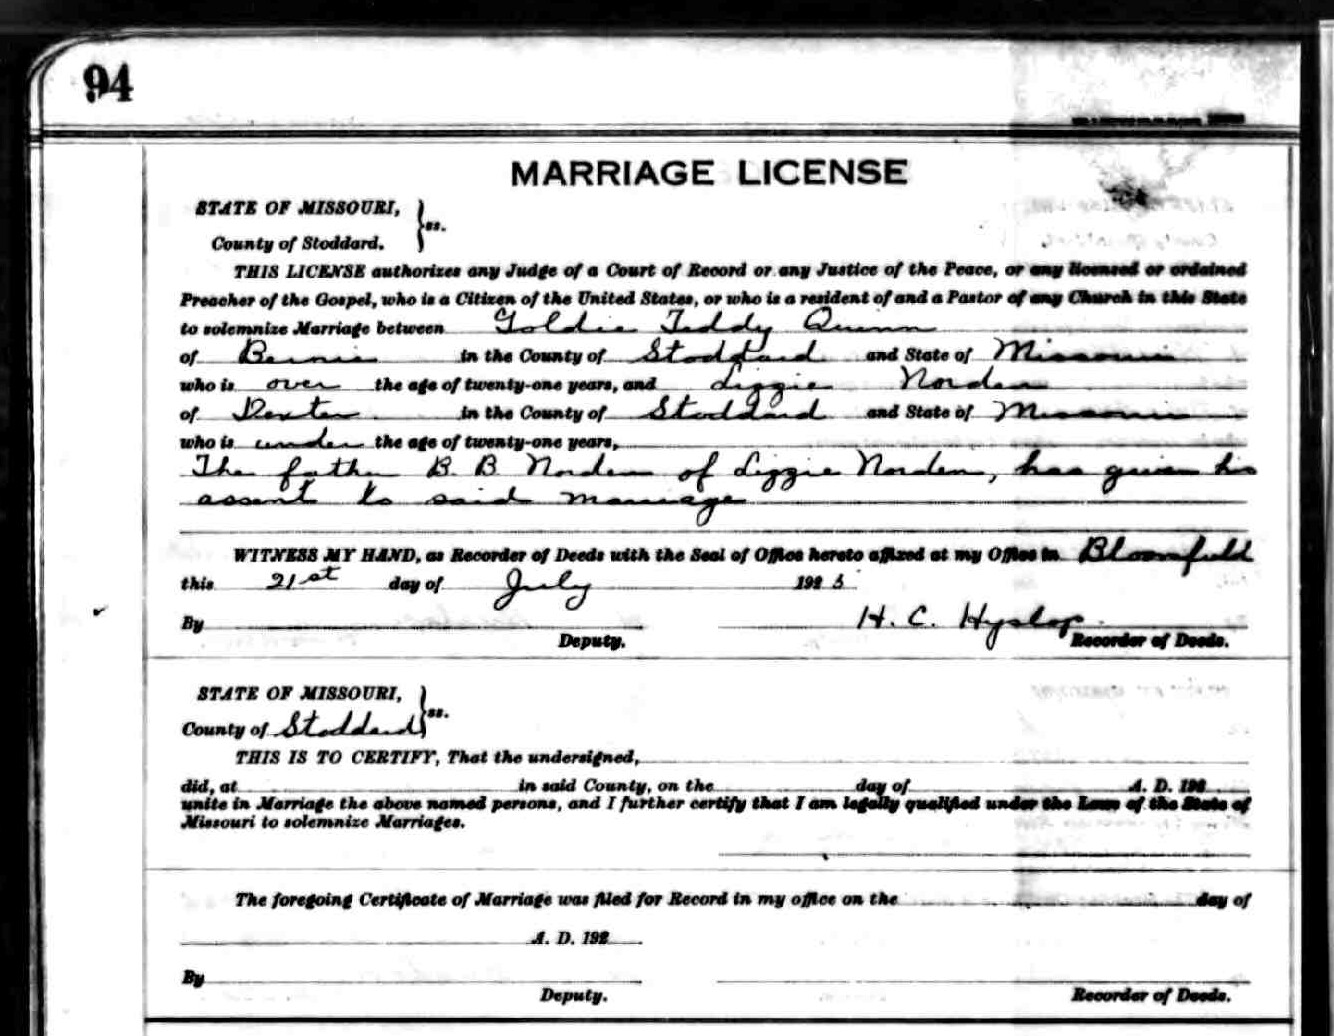 94
MARRIAGE LICENSE
STATE OF MISSOURI,
ss.
County of Stoddard.
THIS LICENSE authorizes any Judge of a Court of Record or any Justice of the Peace, or any licensed or ordained
Preacher of the Gospel, who is a Citizen of the United States, or who is a resident of and a Pastor of any Church in this State
to solemnize Marriage between Goldie Teddy Quinn
of Bernie in the County of Stoddard and State of Missouri
who is over the age of twenty-one years, and Lizzie Norden
of Dexter in the County of Stoddard and State of Missouri
who is under the age of twenty-one years,
The father B. B Norden of Lizzie Norden, has given his
assent to said marriage
WITNESS MY HAND, as Recorder of Deeds with the Seal of Office hereto affixed at my Office in Bloomfield
this 21st day of July 192
By H. C. Hyslop
Deputy. Recorder of Deeds.
STATE OF MISSOURI,
ss.
County of Stoddard
THIS IS TO CERTIFY, That the undersigned,
did, at in said County, on the day of A. D. 192
unite in Marriage the above named persons, and I further certify that I am legally qualified under the Laws of the State of
Missouri to solemnize Marriages.
The foregoing Certificate of Marriage was filed for Record in my office on the day of
A. D. 192
By
Deputy. Recorder of Deeds.